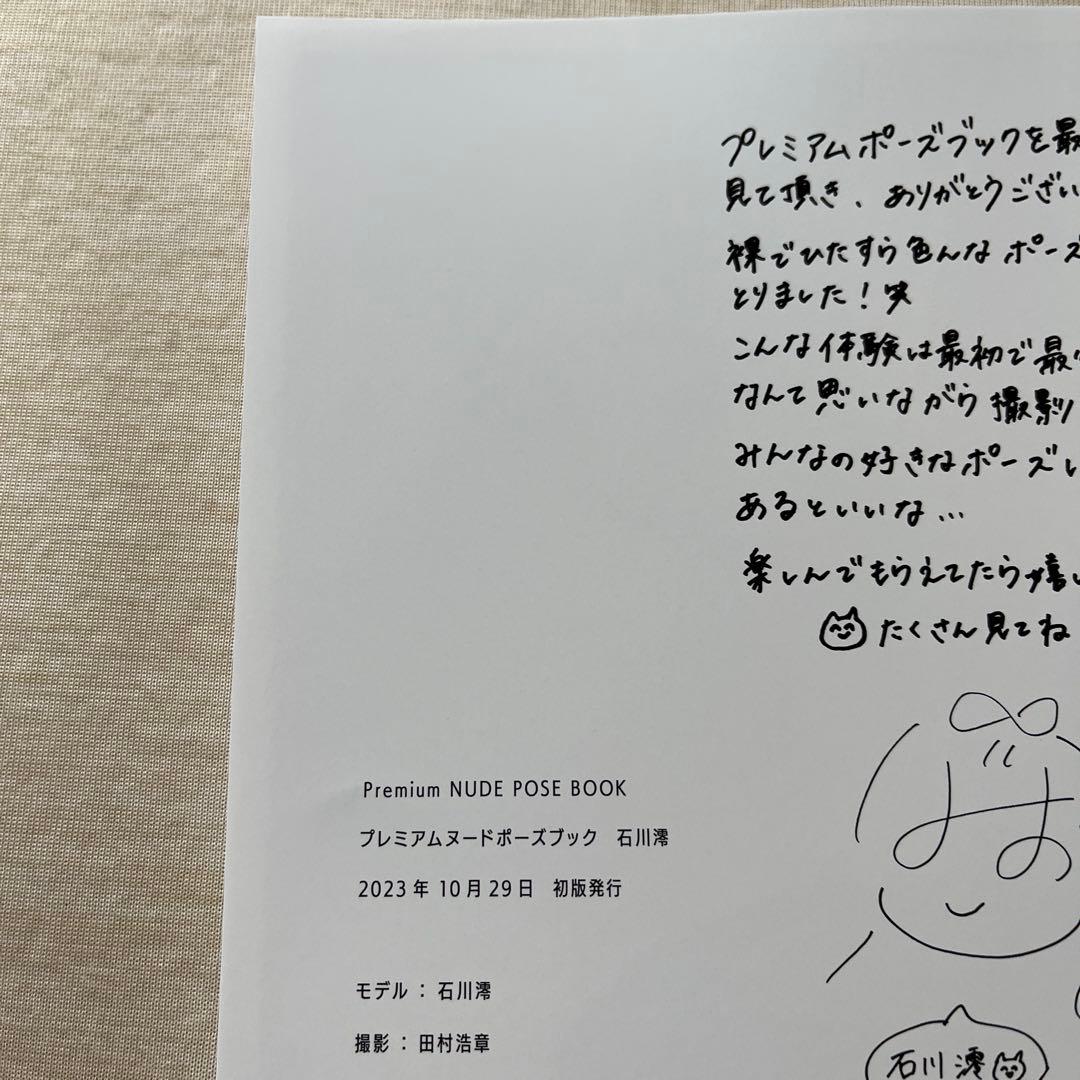 プレミアムポーズブックを最
見て頂き、ありがとうござい
裸でひたすら色んなポーズ
とりました！笑
こんな体験は最初で最
なんて思いながら撮影
みんなの好きなポーズ
あるといいな…
楽しんでもらえてたら嬉し
たくさん見てね
みお
Premium NUDE POSE BOOK
プレミアムヌードポーズブック 石川澪
2023年10月29日 初版発行
モデル：石川澪
撮影：田村浩章
石川澪